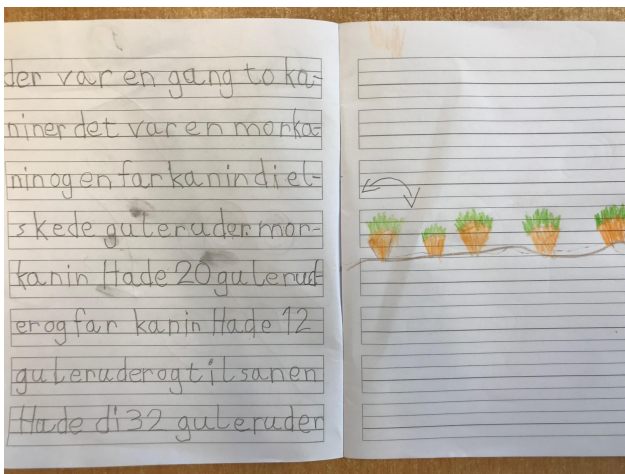 der var en gang to ka-
niner det var en morka-
nin og en far kanin di el-
skede guleruder mor-
kanin Hade 20 gulerud-
er og far kanin Hade 12
guleruder og til sanen
Hade di 32 guleruder